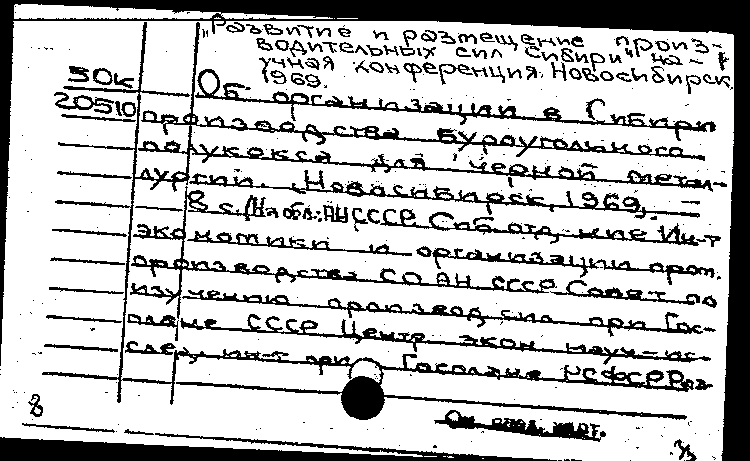 „Развитие и размещение произ-
водительных сил Сибири" на-
учная конференция. Новосибирск.
1969.
50к
20510
Об организации в Сибири
производства буроугольного
полукокса для черной метал-
лургии. Новосибирск, 1969.
8 с. (На обл.: АН СССР. Сиб. отд-ние Ин-т
экономики и организации пром.
производства СО АН СССР. Совет по
изучению производ. сил при Гос-
плане СССР Центр. экон. науч.-ис-
след. ин-т при Госплане РСФСР. Раз
8
См. след. карт.